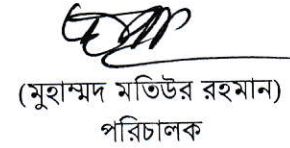 (মুহাম্মদ মতিউর রহমান)
পরিচালক